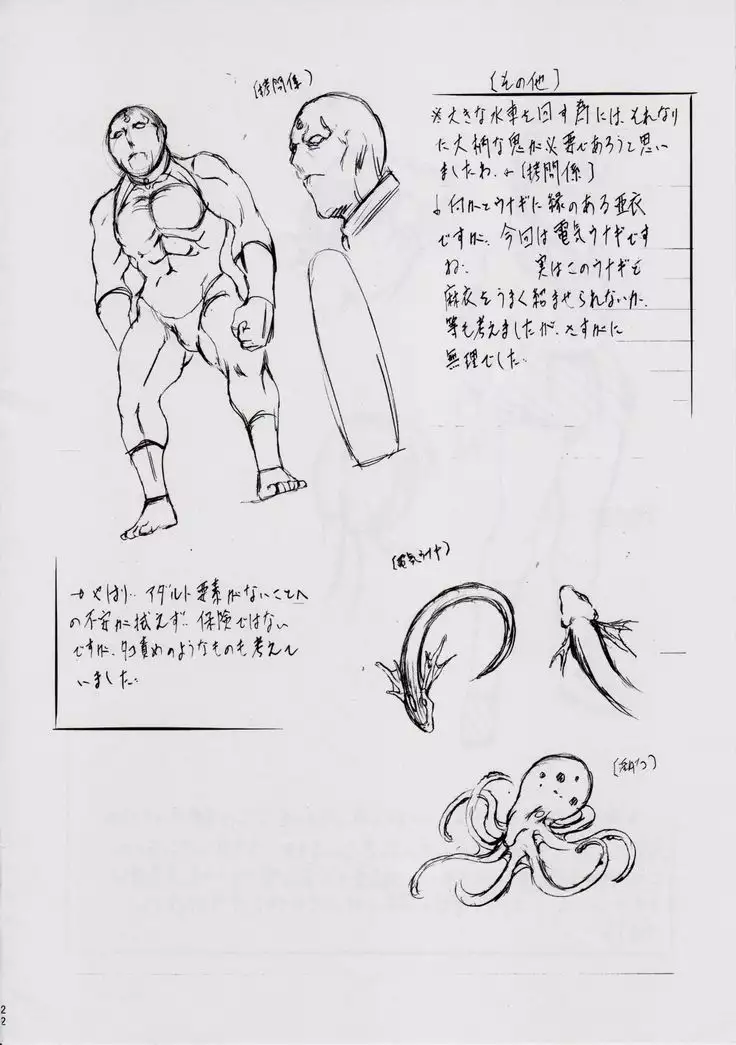 (拷問係)
[その他]
※大きな水車を回す為には、それなり
に大柄な鬼が必要であろうと思い
ましたわ [拷問係]
↓何かとウナギに縁のある亜衣
ですが、今回は電気ウナギです
ね… 実はこのウナギも
麻衣をうまく絡ませられないか、
等も考えましたが、さすがに
無理でした…
(電気ウナギ)
→やはり… アダルト要素がないことへ
の不安が拭えず… 保険ではない
ですが、タコ責めのようなものも考えて
いました…
22